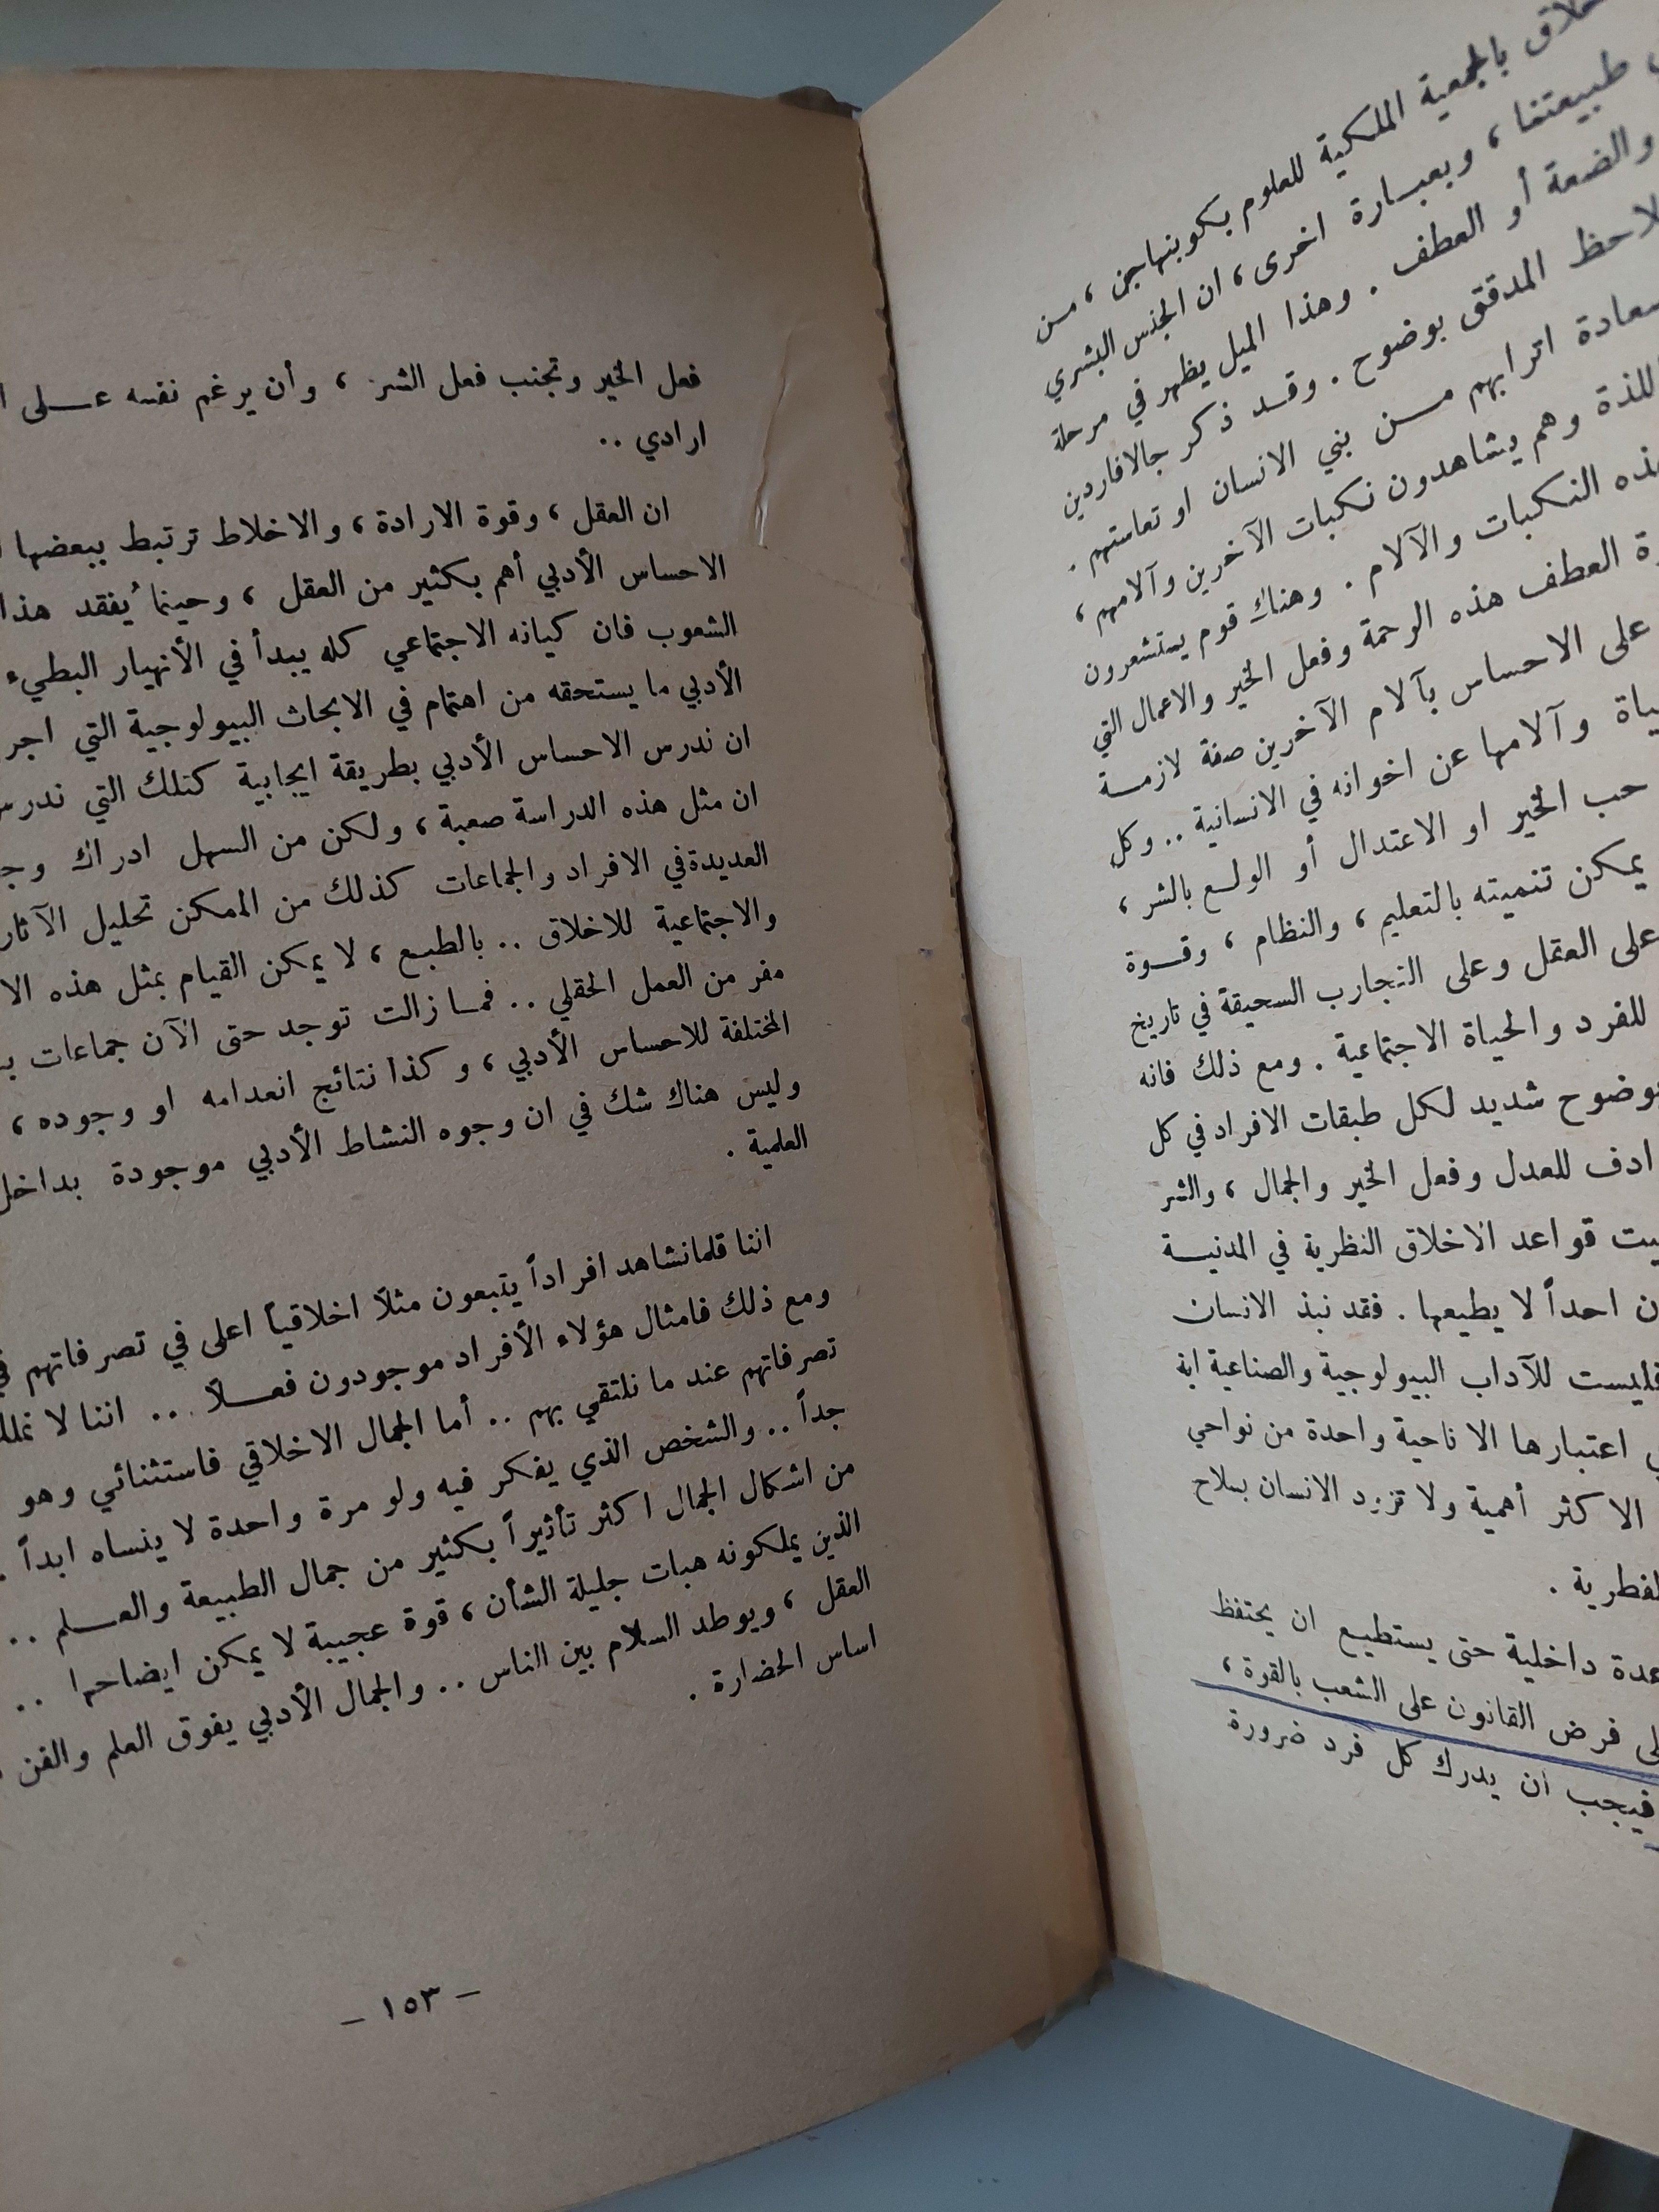 بالجمعية الملكية للعلوم بكوبنهاجن ، من
طبيعتنا ، وبعبارة اخرى ، ان الجنس البشري
والضعة أو العطف . وهذا الميل يظهر في مرحلة
المدقق بوضوح . وقد ذكر جالافاردين
اترابهم من بني الانسان او تعاستهم .
وهم يشاهدون نكبات الآخرين وآلامهم ،
النكبات والآلام . وهناك قوم يستشعرون
العطف هذه الرحمة وفعل الخير والاعمال التي
على الاحساس بآلام الآخرين صفة لازمة
وآلامها عن اخوانه في الانسانية .. وكل
حب الخير او الاعتدال أو الولع بالشر ،
يمكن تنميته بالتعليم ، والنظام ، وقوة
على العقل وعلى التجارب السحيقة في تاريخ
للفرد والحياة الاجتماعية . ومع ذلك فانه
بوضوح شديد لكل طبقات الافراد في كل
للعدل وفعل الخير والجمال ، والشر
قواعد الاخلاق النظرية في المدنية
احداً لا يطيعها . فقد نبذ الانسان
فليست للآداب البيولوجية والصناعية اية
اعتبارها الا ناحية واحدة من نواحي
الاكثر أهمية ولا تزود الانسان بسلاح
داخلية حتى يستطيع ان يحتفظ
فرض القانون على الشعب بالقوة ،
فيجب ان يدرك كل فرد ضرورة
فعل الخير وتجنب فعل الشر ، وأن يرغم نفسه عـلى
ارادي ..
ان العقل ، وقوة الارادة ، والاخلاط ترتبط ببعضها
الاحساس الأدبي أهم بكثير من العقل ، وحينما يُفقد هذا
الشعوب فان كيانه الاجتماعي كله يبدأ في الأنهيار البطيء
الأدبي ما يستحقه من اهتمام في الابحاث البيولوجية التي
ان ندرس الاحساس الأدبي بطريقة ايجابية كتلك التي
ان مثل هذه الدراسة صعبة ، ولكن من السهل ادراك
العديدة في الافراد والجماعات كذلك من الممكن تحليل
والاجتماعية للاخلاق .. بالطبع ، لا يمكن القيام بمثل هذه
مفر من العمل الحقلي .. فما زالت توجد حتى الآن جماعات
المختلفة للاحساس الأدبي ، وكذا نتائج انعدامه او وجوده ،
وليس هناك شك في ان وجوه النشاط الأدبي موجودة
العلمية .
اننا قلما نشاهد افراداً يتبعون مثلاً اخلاقياً اعلى في تصرفاتهم
ومع ذلك فامثال هؤلاء الأفراد موجودون فعـلاً ... اننا لا
تصرفاتهم عند ما نلتقي بهم .. أما الجمال الاخلاقي فاستثنائي وهو
جداً .. والشخص الذي يفكر فيه ولو مرة واحدة لا ينساه ابداً
من اشكال الجمال اكثر تأثيراً بكثير من جمال الطبيعة والعـلم ..
الذين يملكونه هبات جليلة الشأن ، قوة عجيبة لا يمكن ايضاحها ..
العقل ، ويوطد السلام بين الناس .. والجمال الأدبي يفوق العلم والفن
اساس الحضارة .
– ١٥٣ –